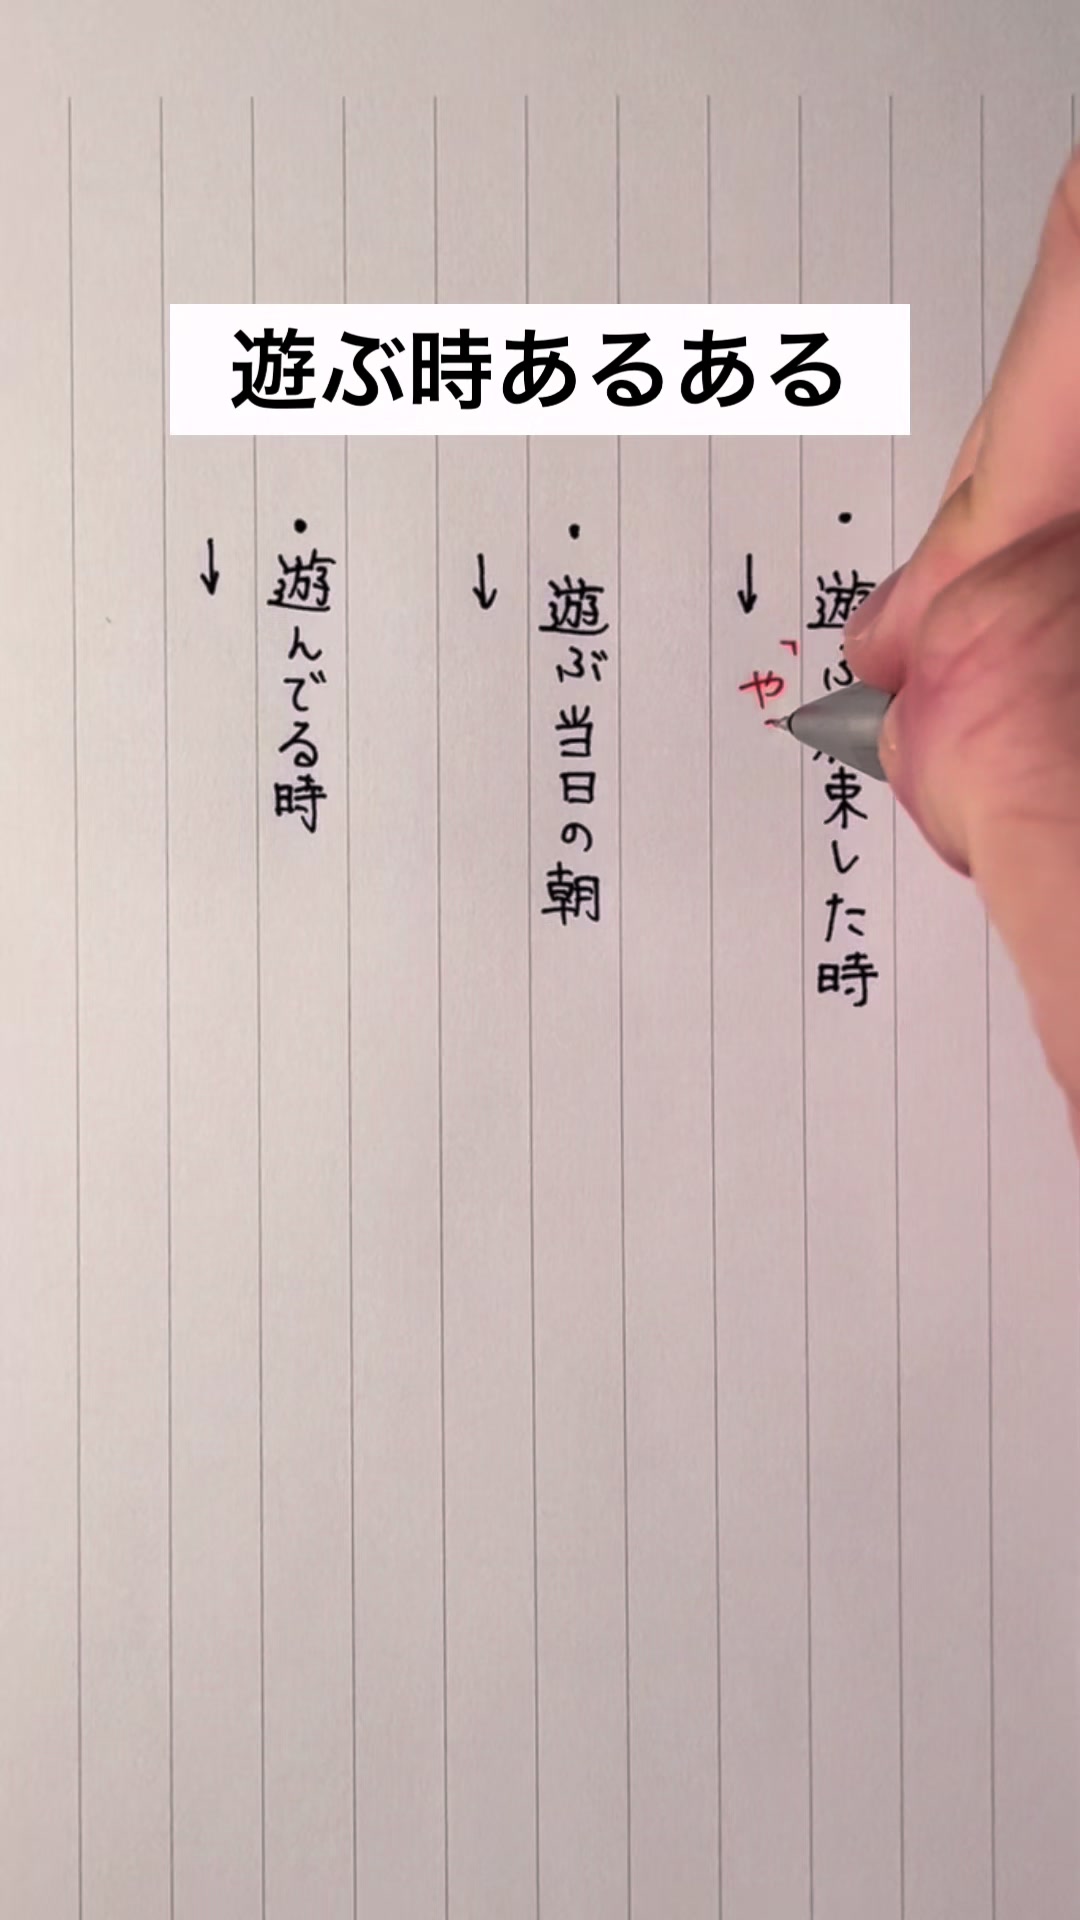 遊ぶ時あるある
・遊ぶ 束した時
↓「や
・遊ぶ当日の朝
↓
・遊んでる時
↓